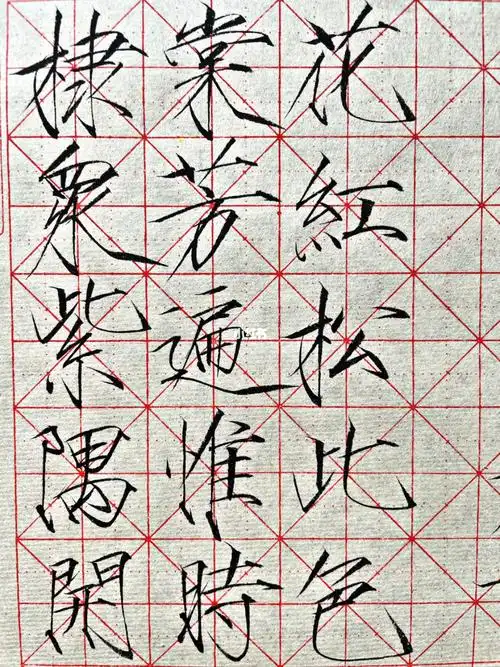 棣棠花
衆芳紅
紫遍松
隅惟比
開時色